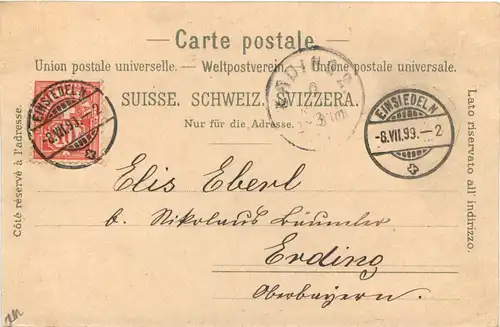 Carte postale.
Union postale universelle. — Weltpostverein. — Unione postale universale.
SUISSE. SCHWEIZ. SVIZZERA.
Nur für die Adresse.
Côté réservé à l'adresse.
Lato riservato all' indirizzo.
EINSIEDELN
-8.VII.99.-2
EINSIEDELN
-8.VII.99.-2
ERDING
Elis Eberl
b. Nikolaus Bäumler
Erding
Oberbayern.